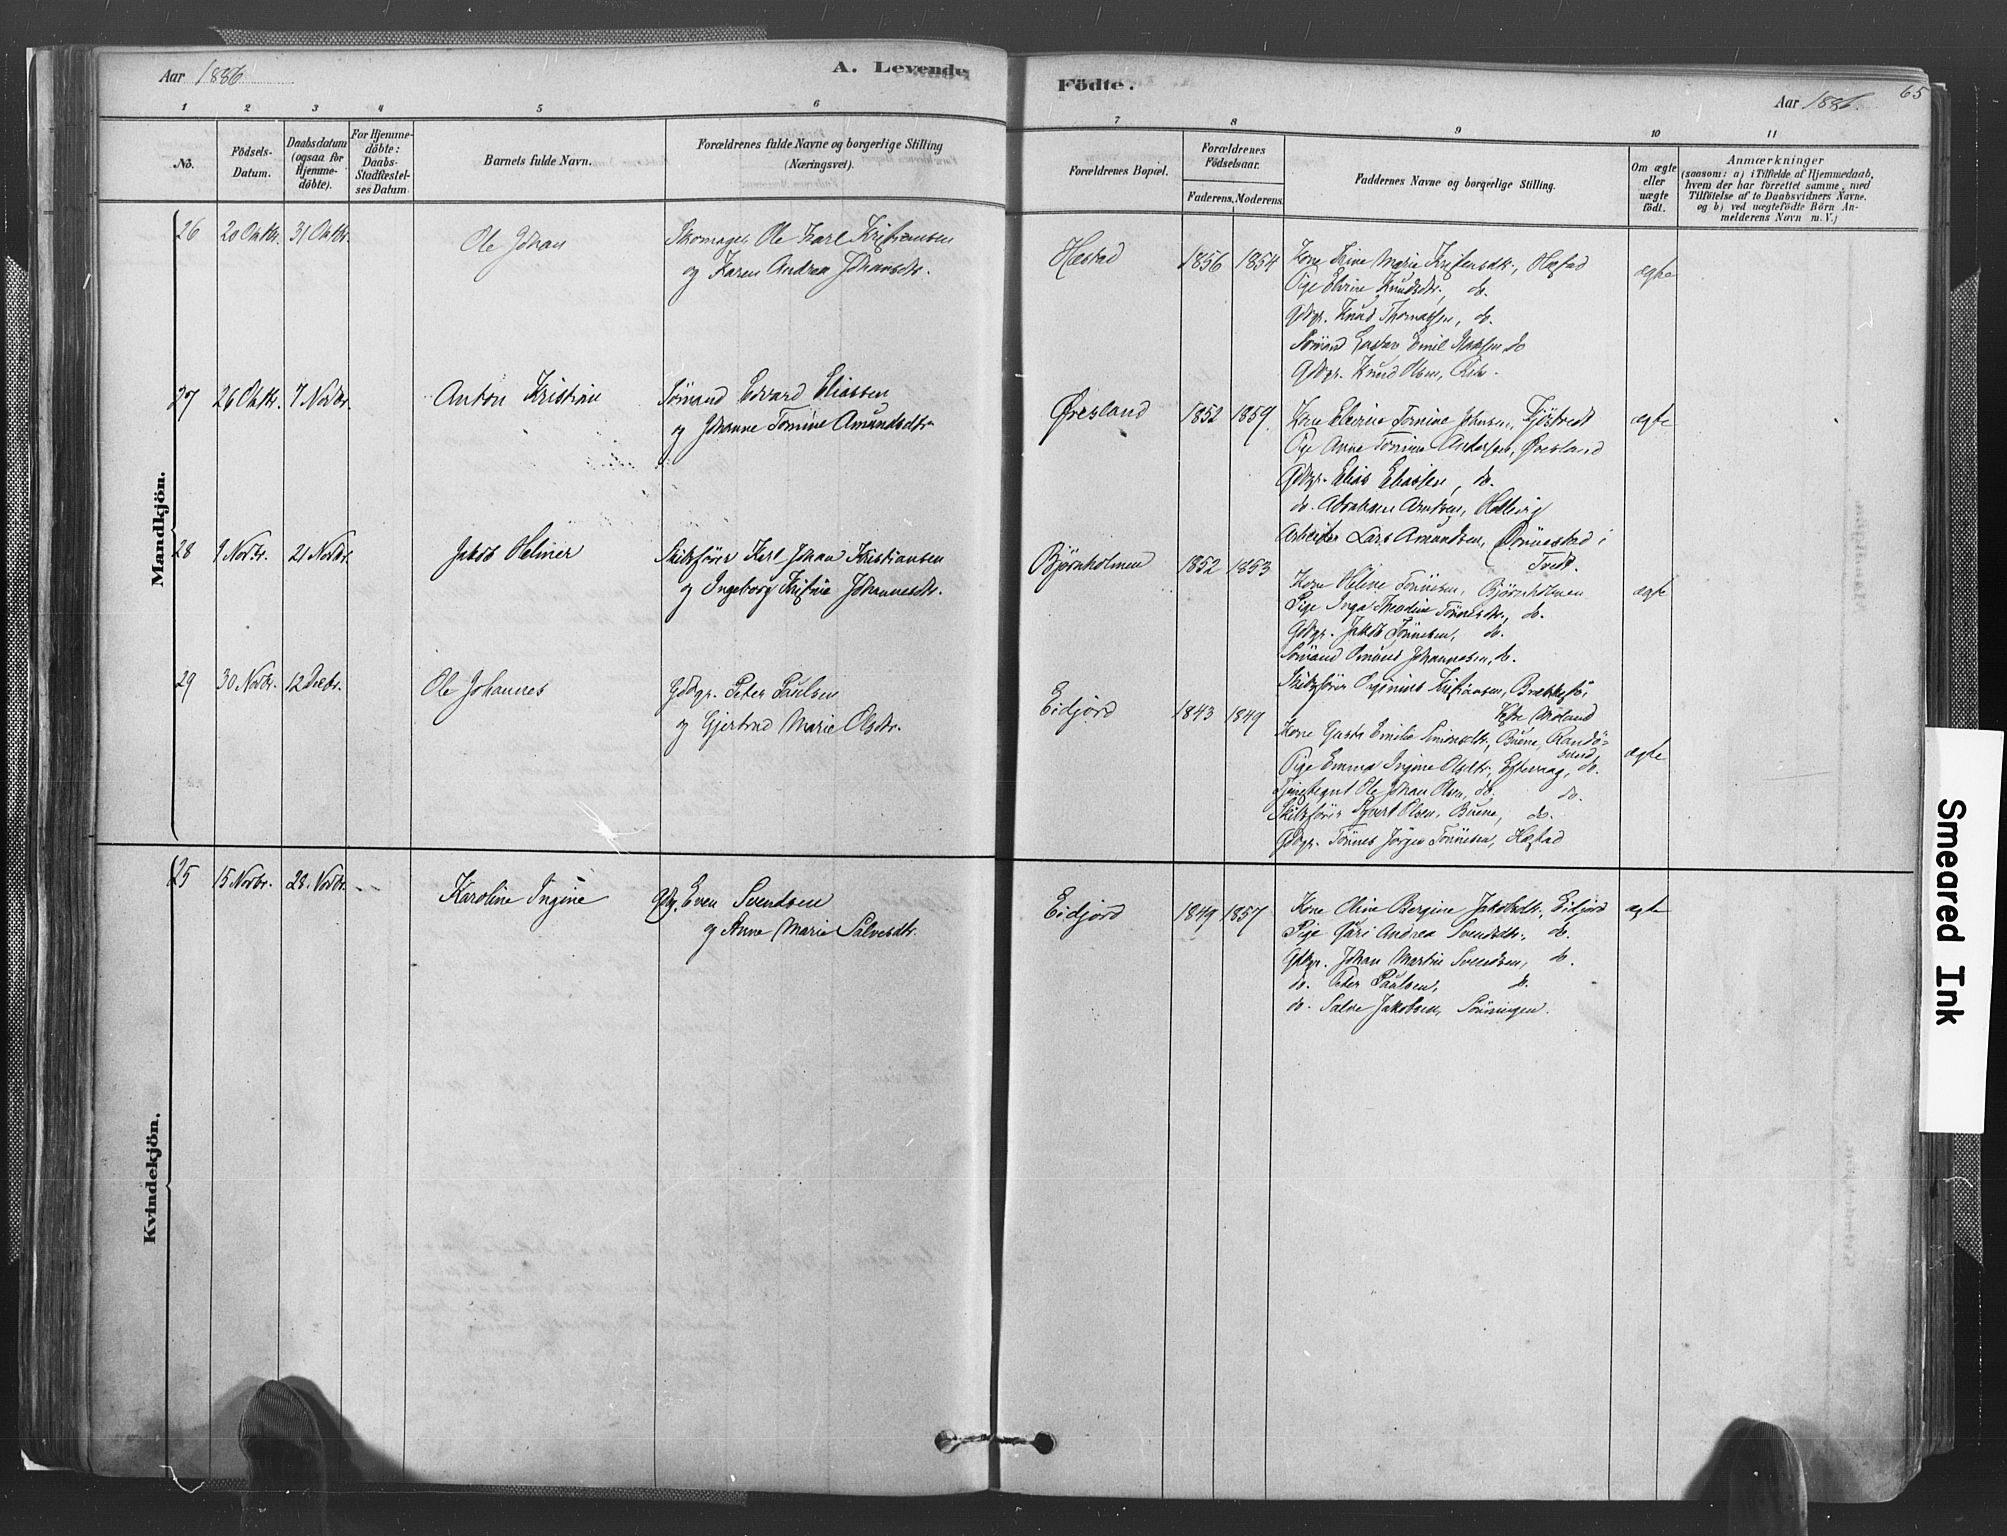 Aar 1886
A. Levende
Födte.
Aar 1886.
65
1 2 3 4 5 6 7 8 9 10 11
No.
Födsels-Datum.
Daabsdatum (ogsaa for Hjemme-döbte).
For Hjemme-döbte: Daabs-Stadfæstel-ses Datum
Barnets fulde Navn.
Forældrenes fulde Navne og borgerlige Stilling
(Næringsvei).
Forældrenes Bopæl.
Forældrenes Födselsaar.
Faderens. Moderens.
Faddernes Navne og borgerlige Stilling.
Om ægte eller uægte födt.
Anmærkninger
(saasom: a) i Tilfælde af Hjemmedaab,
hvem der har forrettet samme, med
Tilföielse af to Daabsvidners Navne,
og b) ved uægtefödte Börn An-
melderens Navn m. V.)
Mandkjön.
26 20 Oktbr. 31 Oktbr. Ole Johan
Skomager Ole Karl Kristiansen
og Karen Andrea Johansdtr.
Hæstad 1856 1854 ægte
Kone Trine Marie Kristensdtr., Hæstad
Pige Elvine Knudsdtr., do.
Gdbgr. Knud Thomassen, do.
Sømand Gustav Emil Madsen do
Gdbgr. Knud Olsen,
27 26 Oktbr. 7 Novbr. Anton Kristian
Sømand Edvard Eliassen
og Johanne Tomine Amundsdtr.
Øvesland 1852 1859 ægte
Kone Elvine Tomine Johnsen,
Pige Anne Tomine Andersen, Øvesland
Gdbgr. Elias Eliassen, do.
do. Abraham Arntsen,
Arbeider Lars Amundsen, Dønnestad i
Tvedt.
28 9 Novbr. 21 Novbr. Jakob Helmer
Skibsfører Karl Johan Kristiansen
og Ingeborg Kristine Johannesdtr.
Bjørnholmen 1852 1853 ægte
Kone Helene Tønnesen, Bjørnholmen
Pige Inga Theodine Tønnesdtr., do.
Gdbgr. Jakob Tønnesen, do.
Sømand Omund Johannesen, do.
Skibsfører Kristiansen, Brækkestø,
Vestre Moland
29 30 Novbr. 12 Decbr. Ole Johannes
Gdbgr. Peter Paulsen
og Gjertrud Marie Olsdtr.
Eidjord 1843 1849 ægte
Kone Gusta Emilie Simonsdtr., Buene, Randø-
sund
Pige Emma Ingine Olsdtr., Eftevaag, do.
Ole Johan Olsen, do. do.
Skibsfører Olsen, Buene, do.
Gdbgr. Tønnes Jörgen Tønnesen, Hæstad
Kvindekjön.
25 15 Novbr. 28 Novbr. Karoline Ingine
Gdbgr. Even Svendsen
og Anne Marie Salvesdtr.
Eidjord 1849 1857 ægte
Kone Oline Bergine Jakobsdtr., Eidjord
Pige Andrea Svendsdtr., do.
Gdbgr. Johan Martin Svendsen, do.
do. Peter Paulsen, do.
do. Salve Jakobsen, Sønningen.
Smeared Ink